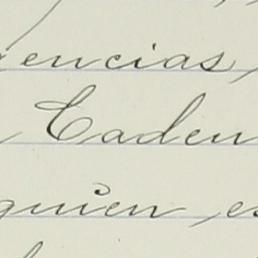 encias,
Caden
quien es